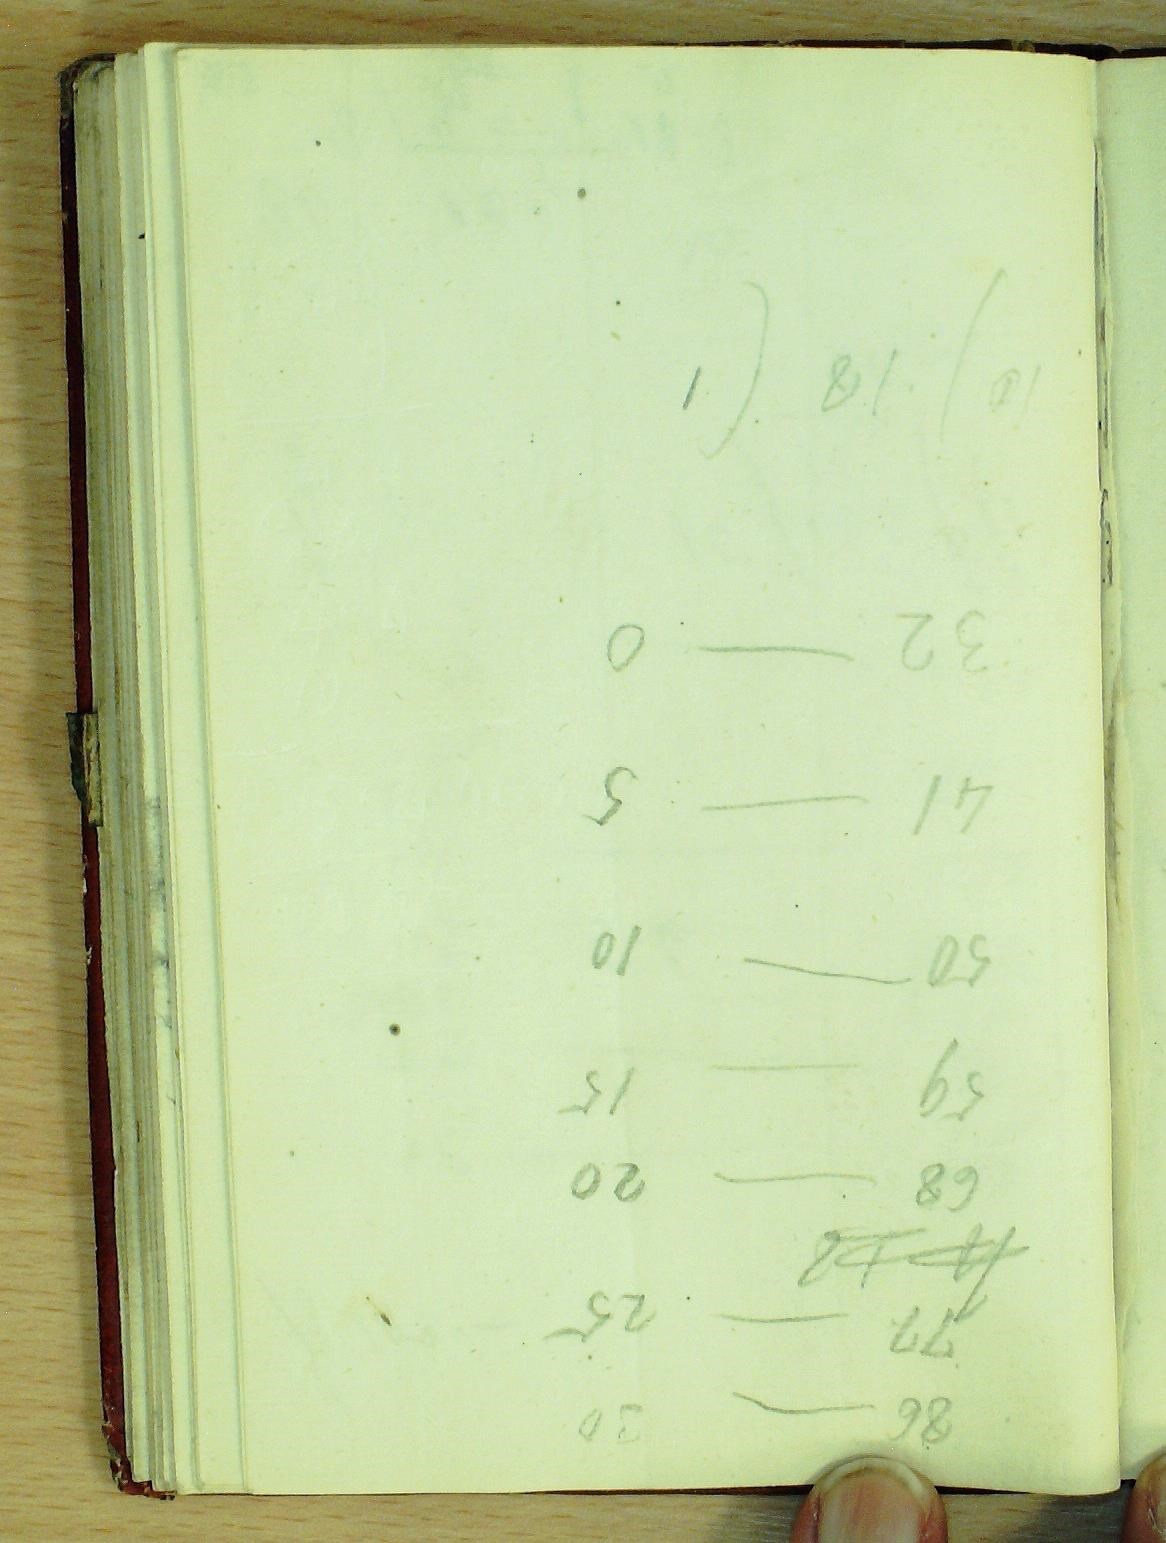 86 — 30
77 — 25
68 — 20
59 — 15
50 — 10
41 — 5
32 — 0
10 ) 18 ( 1